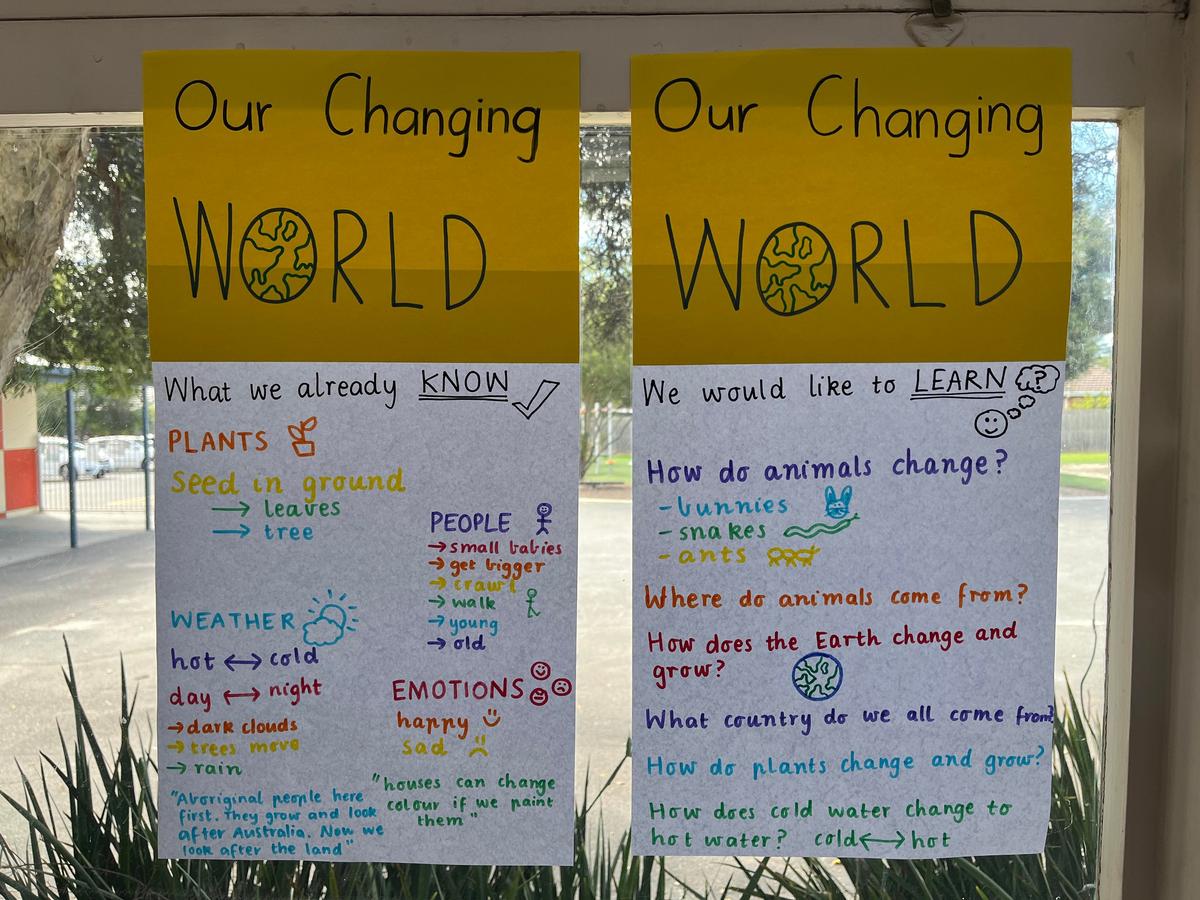 Our Changing
WORLD
What we already KNOW
PLANTS
Seed in ground
→ leaves
→ tree
PEOPLE
→ small babies
→ get bigger
→ crawl
→ walk
→ young
→ old
WEATHER
hot ↔ cold
day ↔ night
→ dark clouds
→ trees move
→ rain
EMOTIONS
happy
sad
"Aboriginal people here
first. They grow and look
after Australia. Now we
look after the land"
"houses can change
colour if we paint
them"
Our Changing
WORLD
We would like to LEARN
?
How do animals change?
- bunnies
- snakes
- ants
Where do animals come from?
How does the Earth change and
grow?
What country do we all come from?
How do plants change and grow?
How does cold water change to
hot water? cold ↔ hot